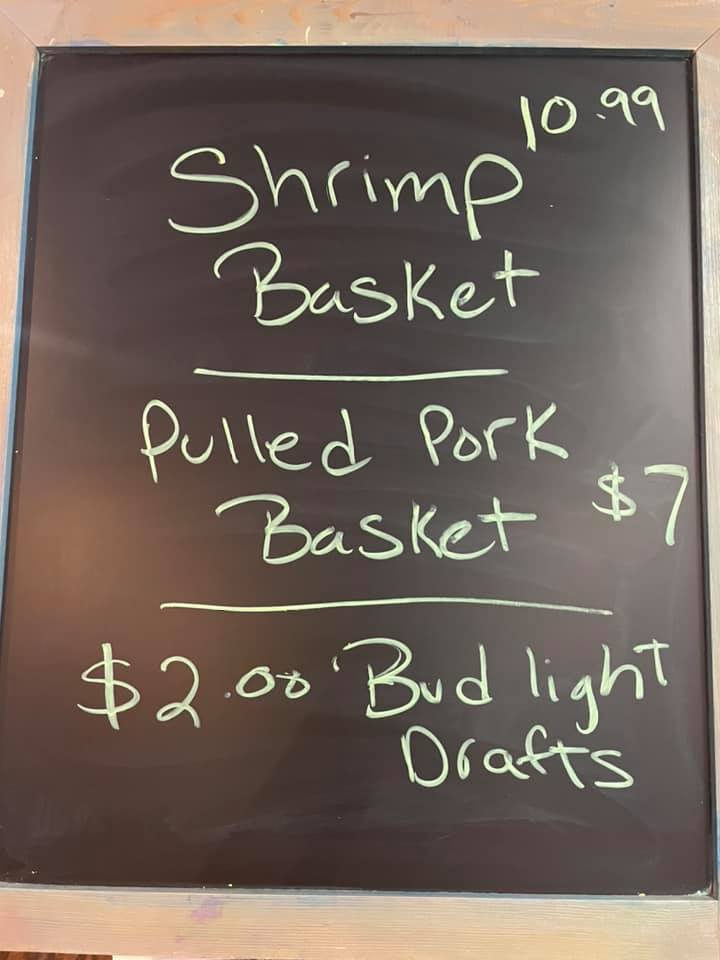 10.99
Shrimp
Basket
Pulled Pork
Basket $7
$2.00 Bud light
Drafts